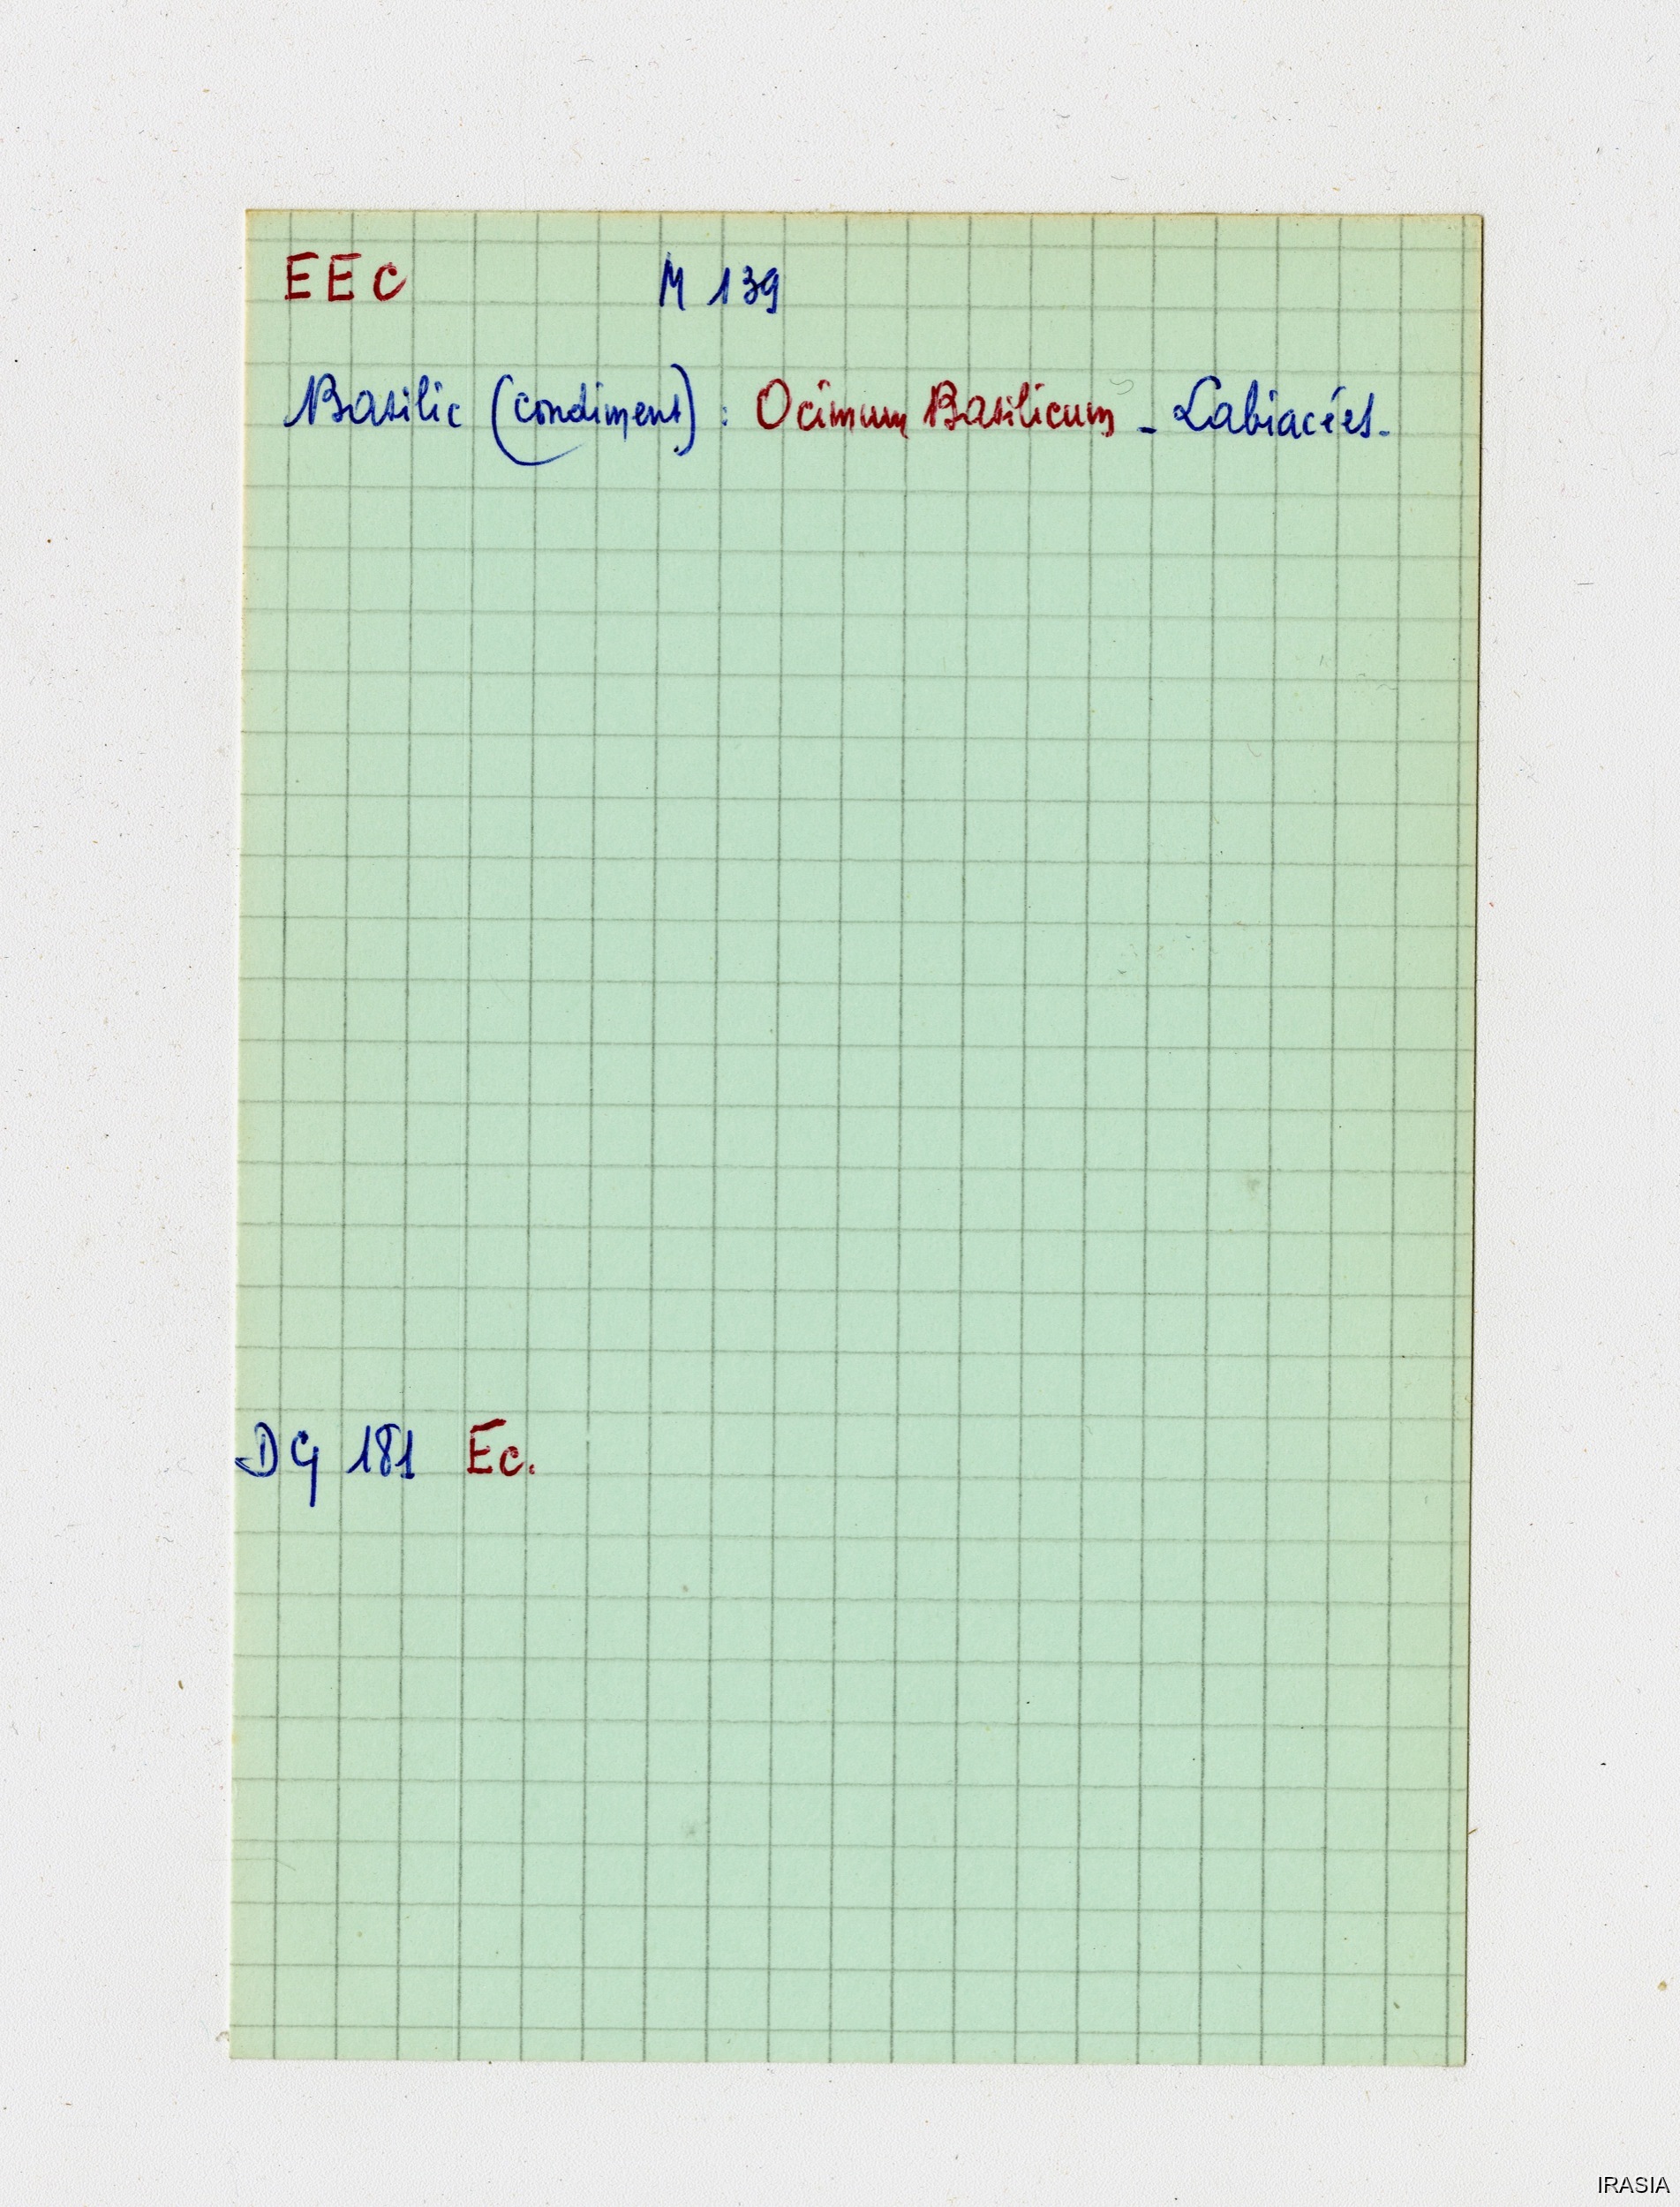 EEC M 139
Basilic (condiment) : Ocimum Basilicum - Labiacées.
DG 181 Ec.
IRASIA